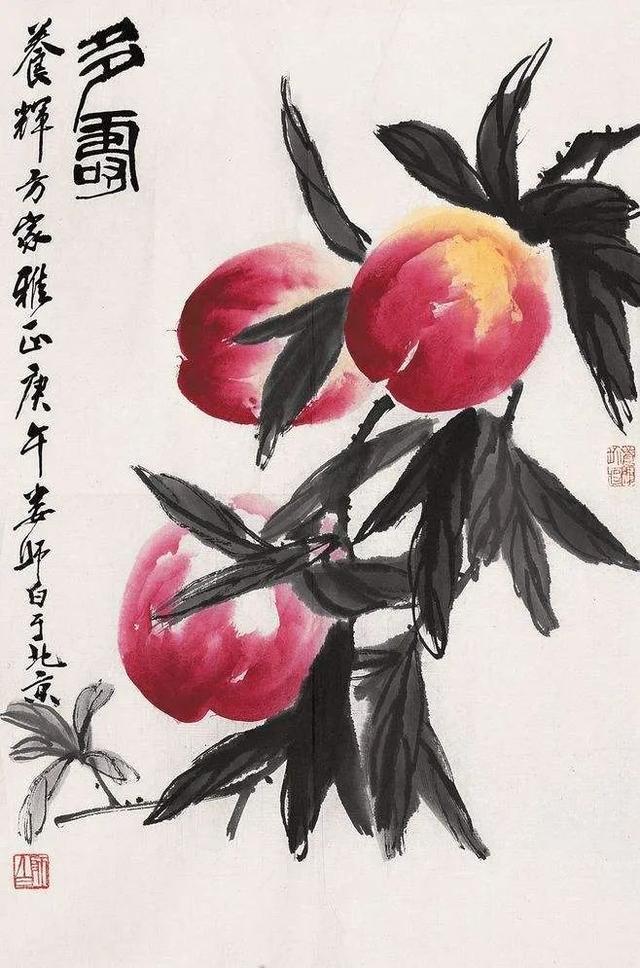 多壽
養輝方家雅正庚午婁師白于北京